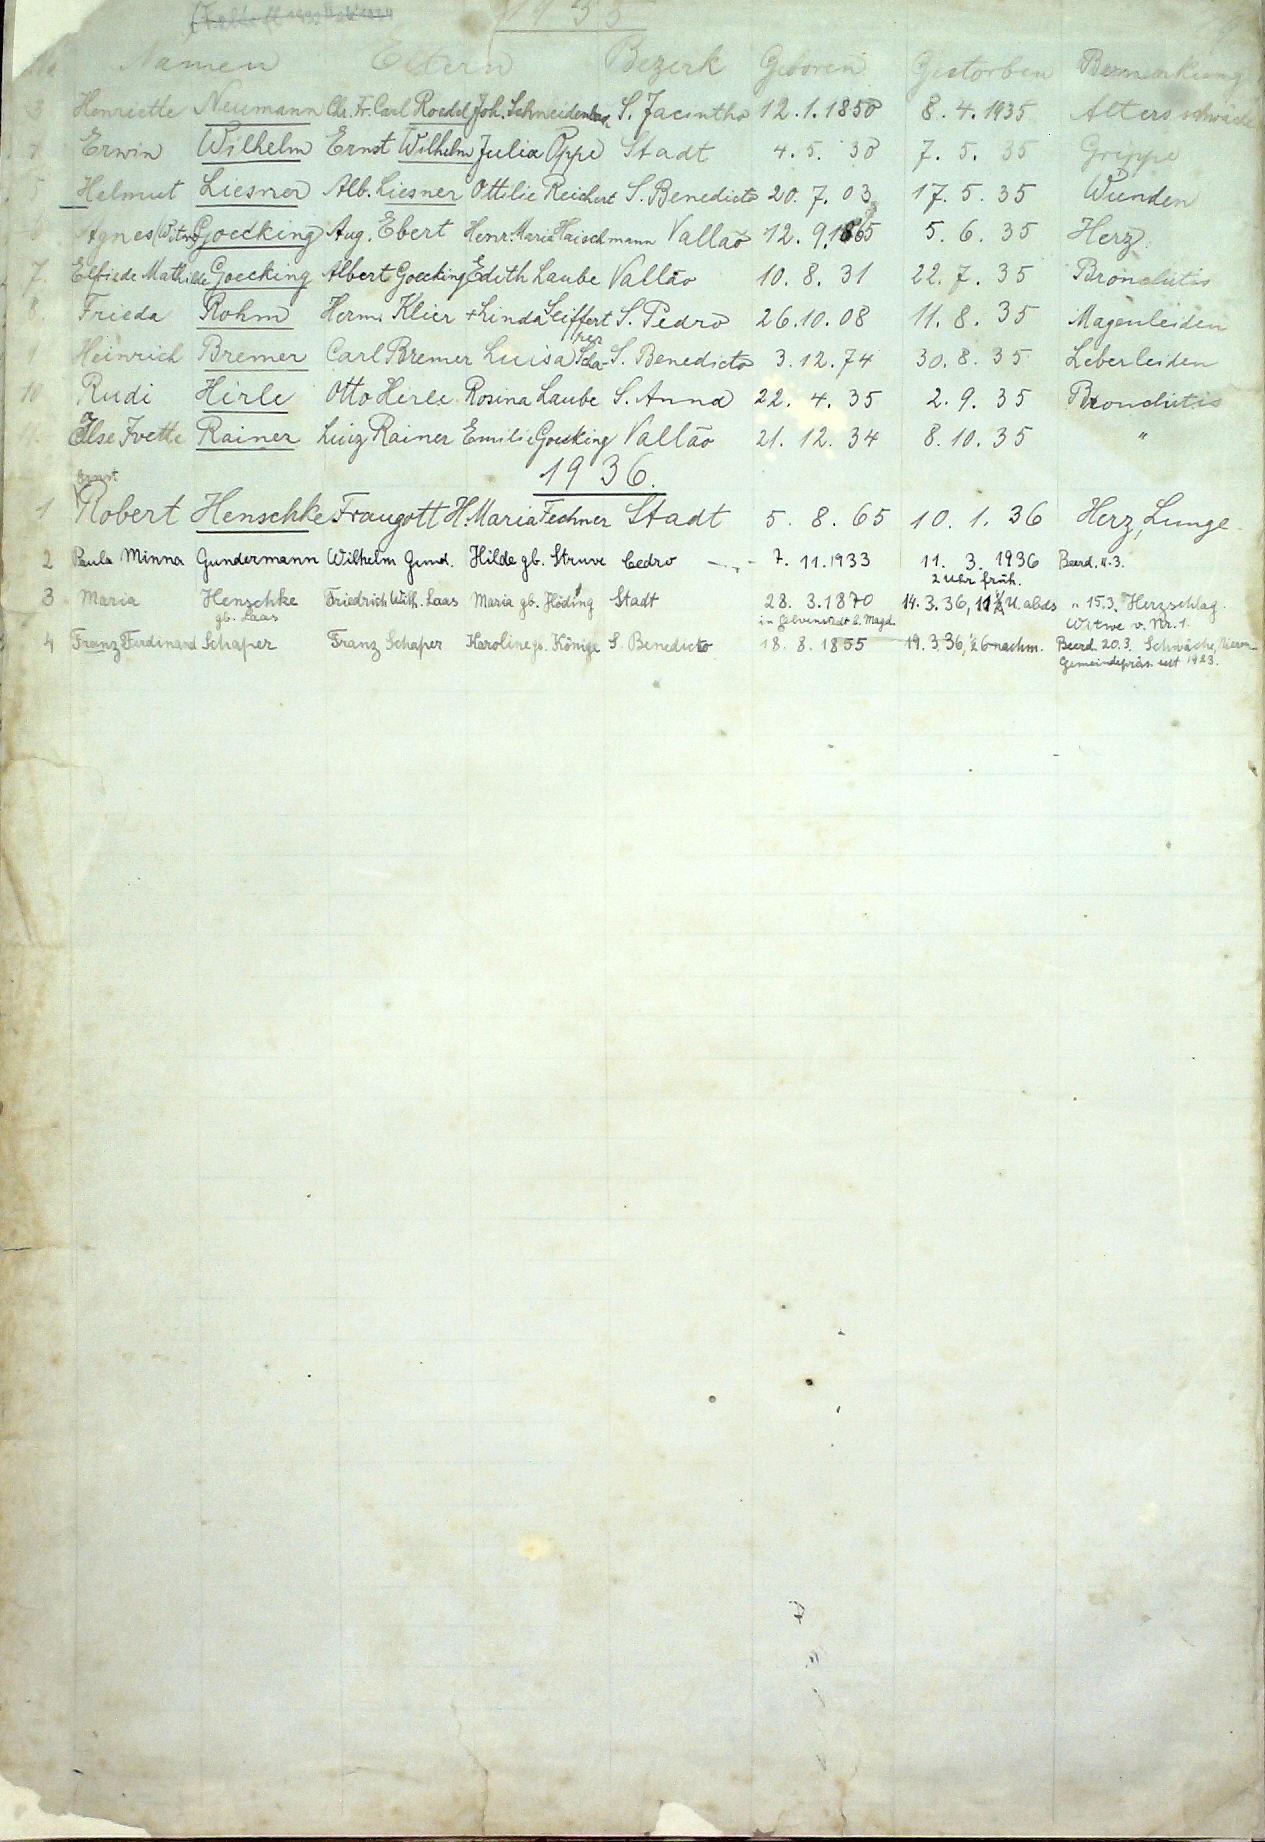 1935
Namen Eltern Bezirk Geboren Gestorben Bemerkung
3 Henriette Neumann Chr. Fr. Carl Roedel Joh. S. Jacintho 12.1.1850 8.4.1935 Altersschwäche
Erwin Wilhelm Ernst Wilhelm Julia Oppe Stadt 4.5.38 7.5.35 Grippe
5 Helmut Liesner Alb. Liesner Ottilie Reichert S. Benedicto 20.7.03 17.5.35 Wunden
Agnes (Witwe) Goecking Aug. Ebert Henr. Maria Haischmann Vallão 12.9.1865 5.6.35 Herz.
7. Elfriede Mathilde Goecking Albert Goecking Edith Laube Vallão 10.8.31 22.7.35 Bronchitis
8. Frieda Rohm Herm. Klier + Linda Seiffert S. Pedro 26.10.08 11.8.35 Magenleiden
Heinrich Bremer Carl Bremer Luisa Schaper S. Benedicto 3.12.74 30.8.35 Leberleiden
10 Rudi Hirle Otto Herle Rosina Laube S. Anna 22.4.35 2.9.35 Bronchitis
Ilse Ivette Rainer Luiz Rainer Emilie Goecking Vallão 21.12.34 8.10.35 "
1936.
Ernst
1 Robert Henschke Traugott H. Maria Fechner Stadt 5.8.65 10.1.36 Herz, Lunge.
2 Paula Minna Gundermann Wilhelm Gund. Hilde gb. Struve Cedro 7.11.1933 11.3.1936 Beerd. 11.3.
2 Uhr früh.
3 Maria Henschke Friedrich Wilh. Laas Maria gb. Höding Stadt 28.3.1870 14.3.36, 11½ U. abds " 15.3. Herzschlag.
gb. Laas in b. Magd. Witwe v. Nr. 1.
4 Franz Ferdinand Schaper Franz Schaper Karoline gb. Könige S. Benedicto 18.8.1855 19.3.36, nachm. Beerd. 20.3. Schwäche,
Gemeindepräs. seit 1923.